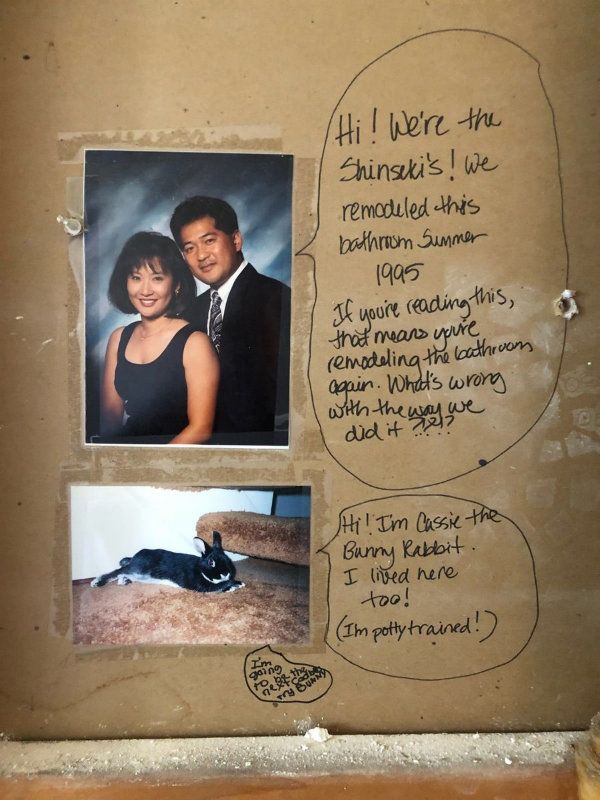 Hi! We're the
Shinseki's! We
remodeled this
bathroom Summer
1995
If you're reading this,
that means you're
remodeling the bathroom
again. What's wrong
with the way we
did it ????!?
Hi! I'm Cassie the
Bunny Rabbit.
I lived here
too!
(I'm potty trained!)
I'm
going
to be the
next
Bunny